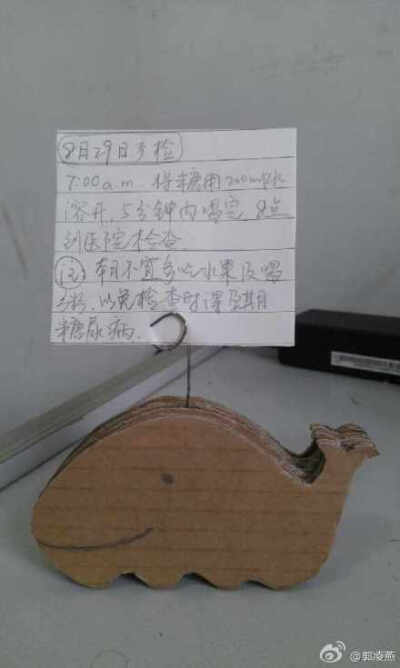 8月29日孕检
7:00 a.m. 将糖用200ml水
溶开,5分钟内喝完.8点
到医院检查.
注 本月不宜多吃水果及喝
以免检查时误孕期
糖尿病.
@郭凌燕